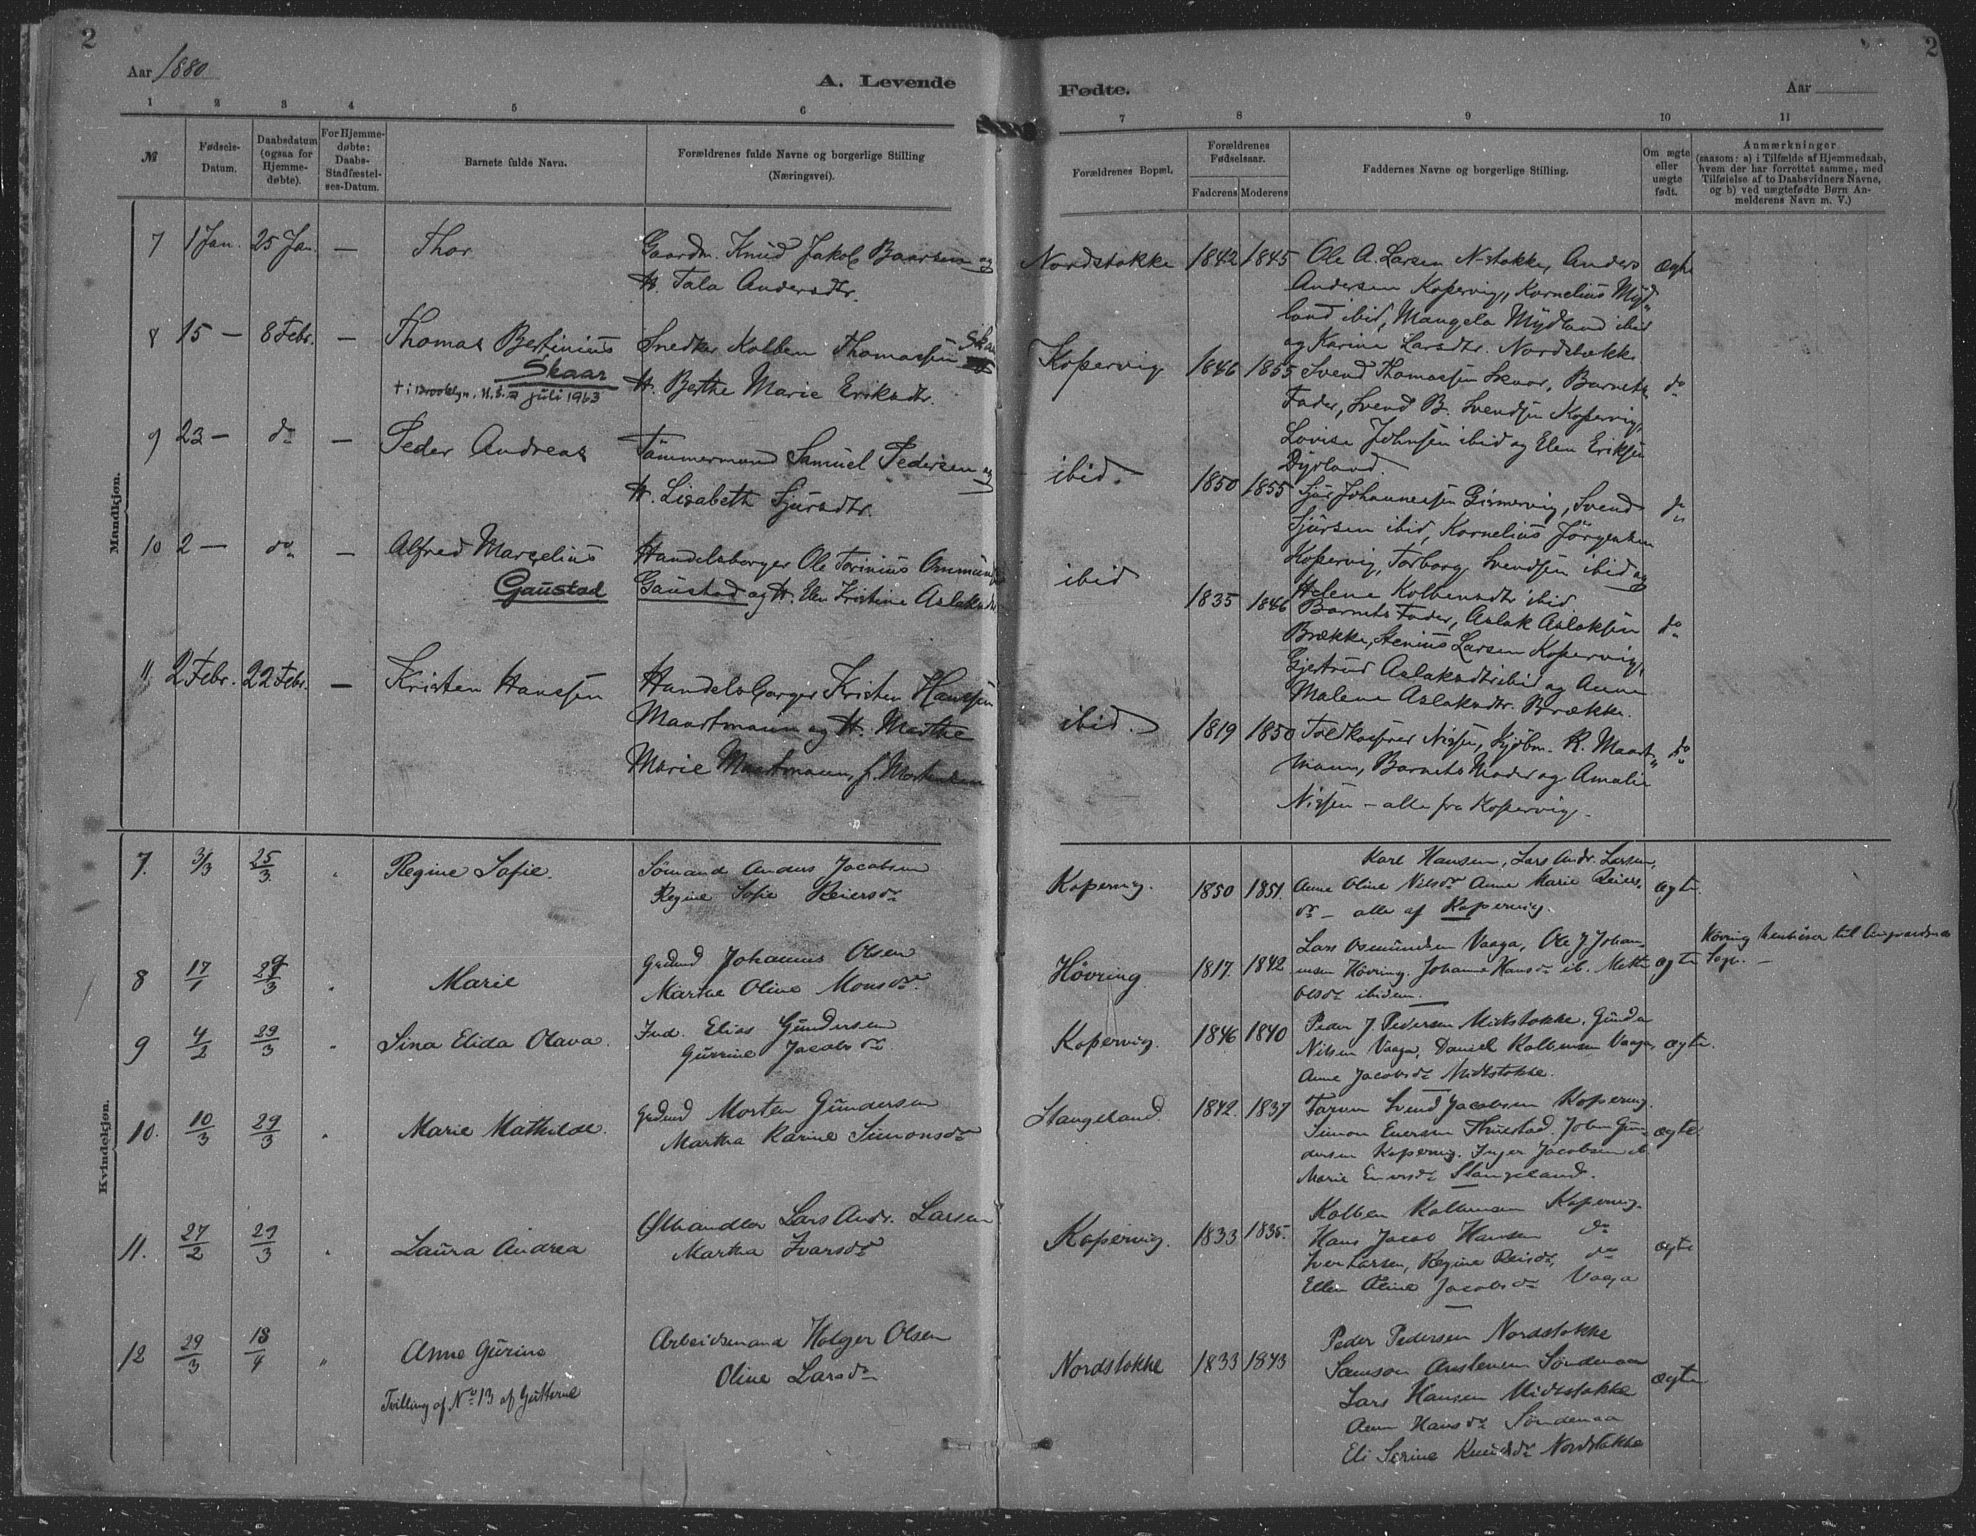 2
Aar 1880
A. Levende
Fødte.
Aar
2
1 2 3 4 5 6 7 8 9 10 11
№
Fødsels-
Datum.
Daabsdatum
(ogsaa for
Hjemme-
døbte).
For Hjemme-
døbte:
Daabs-
Stadfæstel-
ses-Datum.
Barnets fulde Navn.
Forældrenes fulde Navne og borgerlige Stilling
(Næringsvei).
Forældrenes Bopæl.
Forældrenes
Fødselsaar.
Faderens Moderens
Faddernes Navne og borgerlige Stilling.
Om ægte
eller
uægte
født.
Anmærkninger
(saasom: a) i Tilfælde af Hjemmedaab,
hvem der har forrettet samme, med
Tilføielse af to Daabsvidners Navne,
og b) ved uægtefødte Børn An-
melderens Navn m. V.)
Mandkjøn.
7 1 Jan. 25 Jan. — Thor
Gaardm. Knud Jakob Baarsen og
H. Tala Andersdtr.
Nordstokke 1842 1845
Ole A. Larsen N-stokke, Anders
Andersen Kopervig, Kornelius Myd-
land ibid, Mangela Mydland ibid
og Karine Larsdtr. Nordstokke
ægte
8 15 — 8 Febr. — Thomas Bertinius
Skaar
† i Brooklyn, U.S.A juli 1963
Snedker Kolben Thomassen Skaar
H. Berthe Marie Eriksdtr.
Kopervig 1846 1855
Svend Thomassen Skaar, Barnets
Fader, Svend B. Svendsen Kopervig,
Lovise Johnsen ibid og Elen Eriksen
Dyrland.
do
9 23 — do — Peder Andreas
Tømmermand Samuel Pedersen og
H. Lisabeth Sjursdtr.
ibid. 1850 1855
Sjur Johannessen Grinnervig, Svend
Sjursen ibid, Kornelius Jørgensen
Kopervig, Torborg Svendsen ibid og
Helene Kolbensdtr ibid
do
10 2 — do — Alfred Marselius
Gaustad
Handelsborger Ole Torinius Ommunds
Gaustad og H. Elen Kristine Aslaksdtr
ibid 1835 1846
Barnets Fader, Aslak Aslaksen
Brække, Stenius Larsen Kopervig,
Gjertrud Aslaksdtr ibid og Anne
Malene Aslaksdtr. Brække.
do
11 2 Febr. 22 Febr. — Kristen Hanssen
Handelsborger Kristen Hanssen
Maartmann og H. Marthe
Marie Maartmann, f. Mortensen
ibid. 1819 1850
Toldkasserer Nissen, Kjøbm. R. Maart-
mann, Barnets Moder og Amalie
Nissen — alle fra Kopervig.
do
Kvindekjøn.
7. 3/3 25/3 " Regine Sofie.
Sømand Anders Jacobsen
Regine Sofie Reiersdr
Kopervig. 1850 1851.
Karl Hansen, Lars Andr. Larsen,
Anne Oline Nilsdr Anne Marie Reiers-
dr — alle af Kopervig.
ægte.
8 17/1 29/3 " Marie
Grdmd Johannes Olsen
Martha Oline Monsdr.
Høvring 1817. 1842
Lars Osmundsen Vaaga, Ole J. Johan-
nsen Høvring. Johanne Hansdr ib. Mette
Olsdr ibidem.
ægte
Høvring henhører til Avaldsnes
Sogn. —
9 4/2 29/3 " Sina Elida Olava.
Ind. Elias Gundersen
Gurine Jacobsdr
Kopervig. 1846 1840
Peder J. Pedersen Midtstokke. Gunder
Nilsen Vaaga, Daniel Kolbensen Vaaga,
Anne Jacobsdr Midtstokke.
ægte.
10. 10/3 29/3 " Marie Mathilde.
Grdmd Morten Gundersen
Martha Karine Simonsdr
Stangeland 1842. 1837
Svend Jacobsen Kopervig.
Simon Enersen Thuestad. John Gun-
dersen Kopervig. Inger Jacobsen ib
Marie Enersdr Stangeland.
ægte.
11. 27/2 29/3 " Laura Andrea
Ølhandler Lars Andr. Larsen
Martha Ivarsdr
Kopervig. 1833 1835.
Kolben Kolbensen Kopervig.
Hans Jacob Hansen do
Iver Larsen, Regine Reisdr, do
Ellen Oline Jacobsdr Vaaga
ægte
12 29/3 18/4 " Anne Gurine
Tvilling af No 13 af Gutterne
Arbeidsmand Holger Olsen
Oline Larsdr
Nordstokke 1833 1843
Peder Pedersen Nordstokke
Samson Søndenaa
Lars Hansen Midtstokke
Ann Hansdr Søndenaa
Eli Serine Knudsdr Nordstokke
ægte